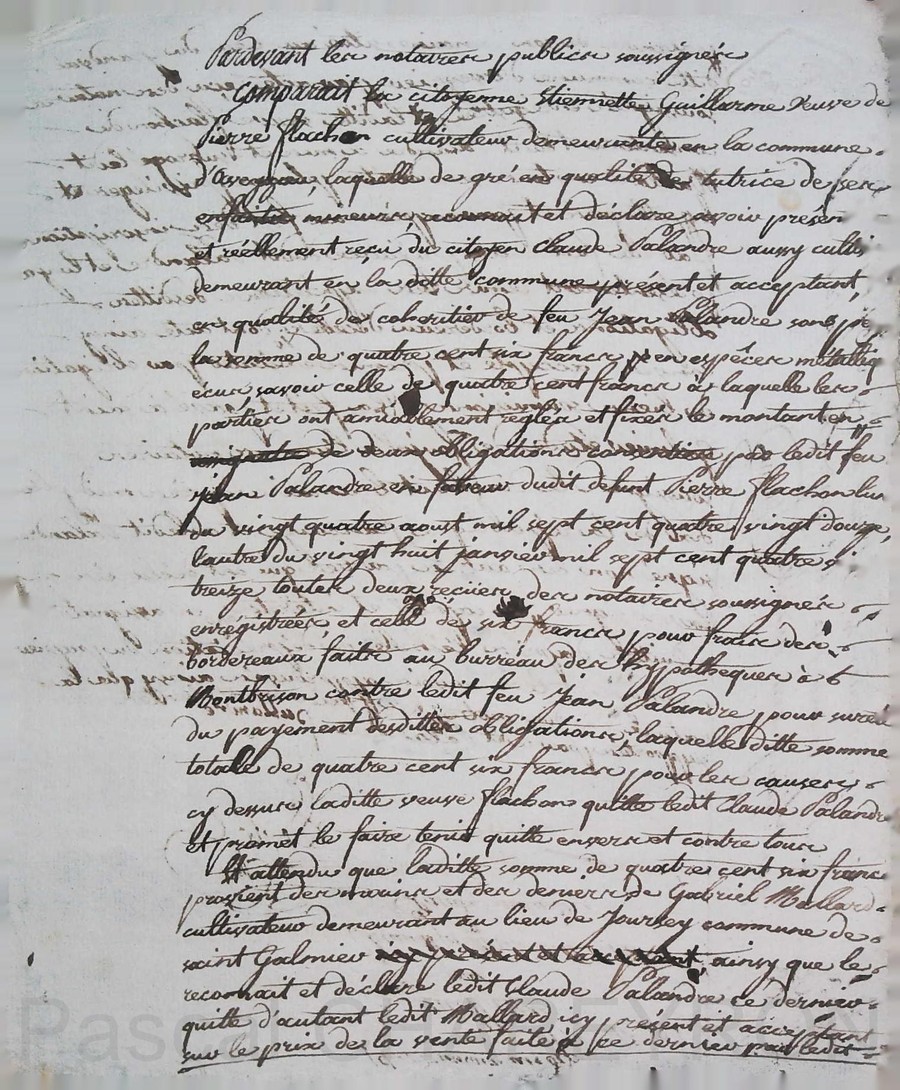 Pardevant les notaires publics soussignés
Comparait la citoyenne Etiennette Guillarme veuve de
Pierre flachon cultivateur demeurante en la commune
d'Aveyzieu, laquelle de gré en qualité de tutrice de ses
enfants mineurs reconnait et déclare avoir présen
et réellement reçu du citoyen Claude Palandre aussy culti
demeurant en la ditte commune présent et acceptant
en qualité de coheritier de feu Jean Palandre son pe
la somme de quatre cent six francs en espéces métalliq
écus, savoir celle de quatre cent francs à laquelle les
parties ont amiablement réglés et fixés le montant en
de deux obligations consenties par ledit feu
jean Palandre en faveur dudit defunt Pierre flachon lun
du vingt quatre aoust mil sept cent quatre vingt douze,
lautre du vingt huit janvier mil sept cent quatre v
treize toutes deux reçues des notaires soussignés
enregistrées, et celle de six francs pour frais des
bordereaux faits au burreau des hypotheques à
Montbrison contre ledit feu Jean Palandre pour sureté
du payement desdittes obligations, laquelle ditte somme
totalle de quatre cent six francs pour les causes
cy dessus laditte veuve flachon quitte ledit Claude Palandre
et promet le faire tenir quitte envers et contre tous
Et attendu que laditte somme de quatre cent six francs
provient des mains et des deniers de Gabriel Mallard
cultivateur demeurant au lieu de Joursey commune de
saint Galmier icy présent et acceptant, ainsy que le
reconnait et déclare ledit Claude Palandre ce dernier
quitte d'autant ledit Mallard icy présent et acceptant
sur le prix de la vente faite à ce dernier par ledit
Pascal